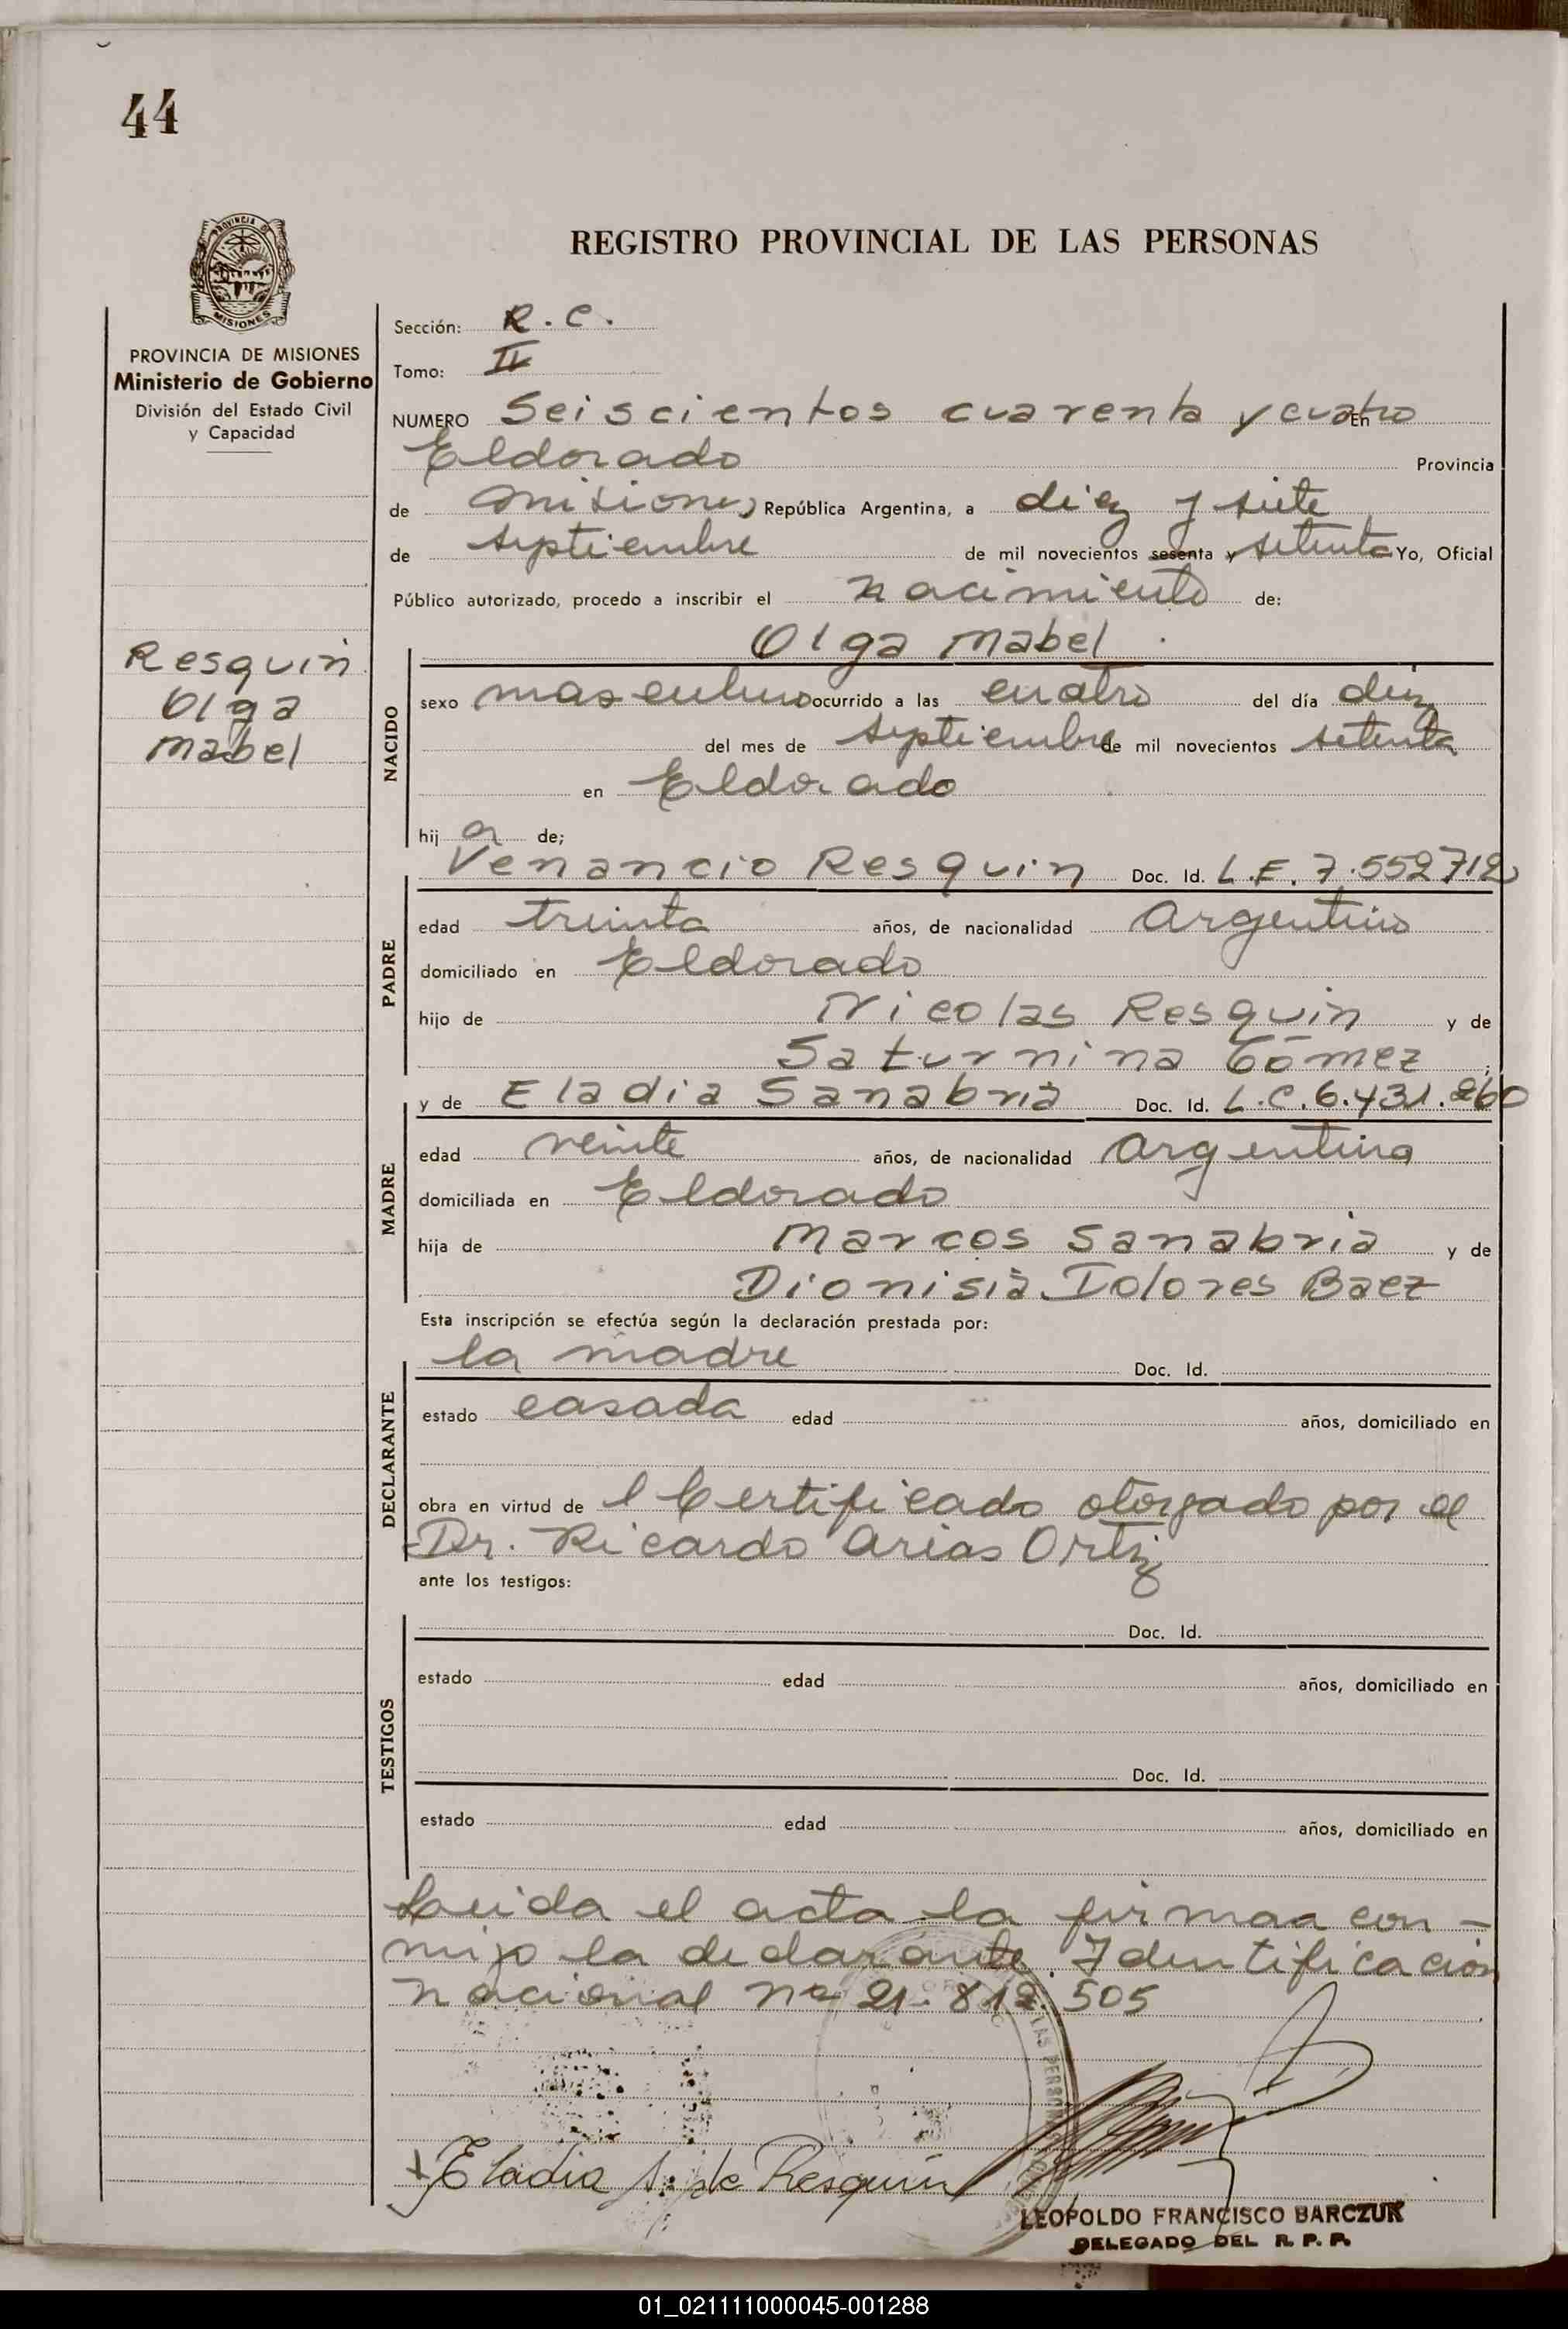 44
PROVINCIA DE MISIONES
REGISTRO PROVINCIAL DE LAS PERSONAS
PROVINCIA DE MISIONES
Ministerio de Gobierno
División del Estado Civil
y Capacidad
Resquin
Olga
Mabel
Sección: R. C.
Tomo: II
NUMERO Seiscientos cuarenta y cuatro En
Eldorado Provincia
de Misiones República Argentina, a diez y siete
de septiembre de mil novecientos sesenta y setenta Yo, Oficial
Público autorizado, procedo a inscribir el nacimiento de:
Olga Mabel
NACIDO
sexo masculino ocurrido a las cuatro del día diez
del mes de septiembre de mil novecientos setenta
en Eldorado
hij a de;
Venancio Resquin Doc. Id. L.E. 7.552712
PADRE
edad treinta años, de nacionalidad Argentino
domiciliado en Eldorado
hijo de Nicolas Resquin y de
Saturnina Gómez ;
y de Eladia Sanabria Doc. Id. L.C. 6.431.260
MADRE
edad veinte años, de nacionalidad Argentina
domiciliada en Eldorado
hija de Marcos Sanabria y de
Dionisia Dolores Baez
Esta inscripción se efectúa según la declaración prestada por:
la madre Doc. Id.
DECLARANTE
estado casada edad años, domiciliado en
obra en virtud de l Certificado otorgado por el
Dr. Ricardo Arias Ortiz
ante los testigos:
TESTIGOS
Doc. Id.
estado edad años, domiciliado en
Doc. Id.
estado edad años, domiciliado en
Leida el acta la firmaa con-
migo la declarante. Identificación
nacional nº 21.812.505
Eladia S. de Resquin
LAS PERSON
LEOPOLDO FRANCISCO BARCZUK
DELEGADO DEL R. P. P.
01_021111000045-001288